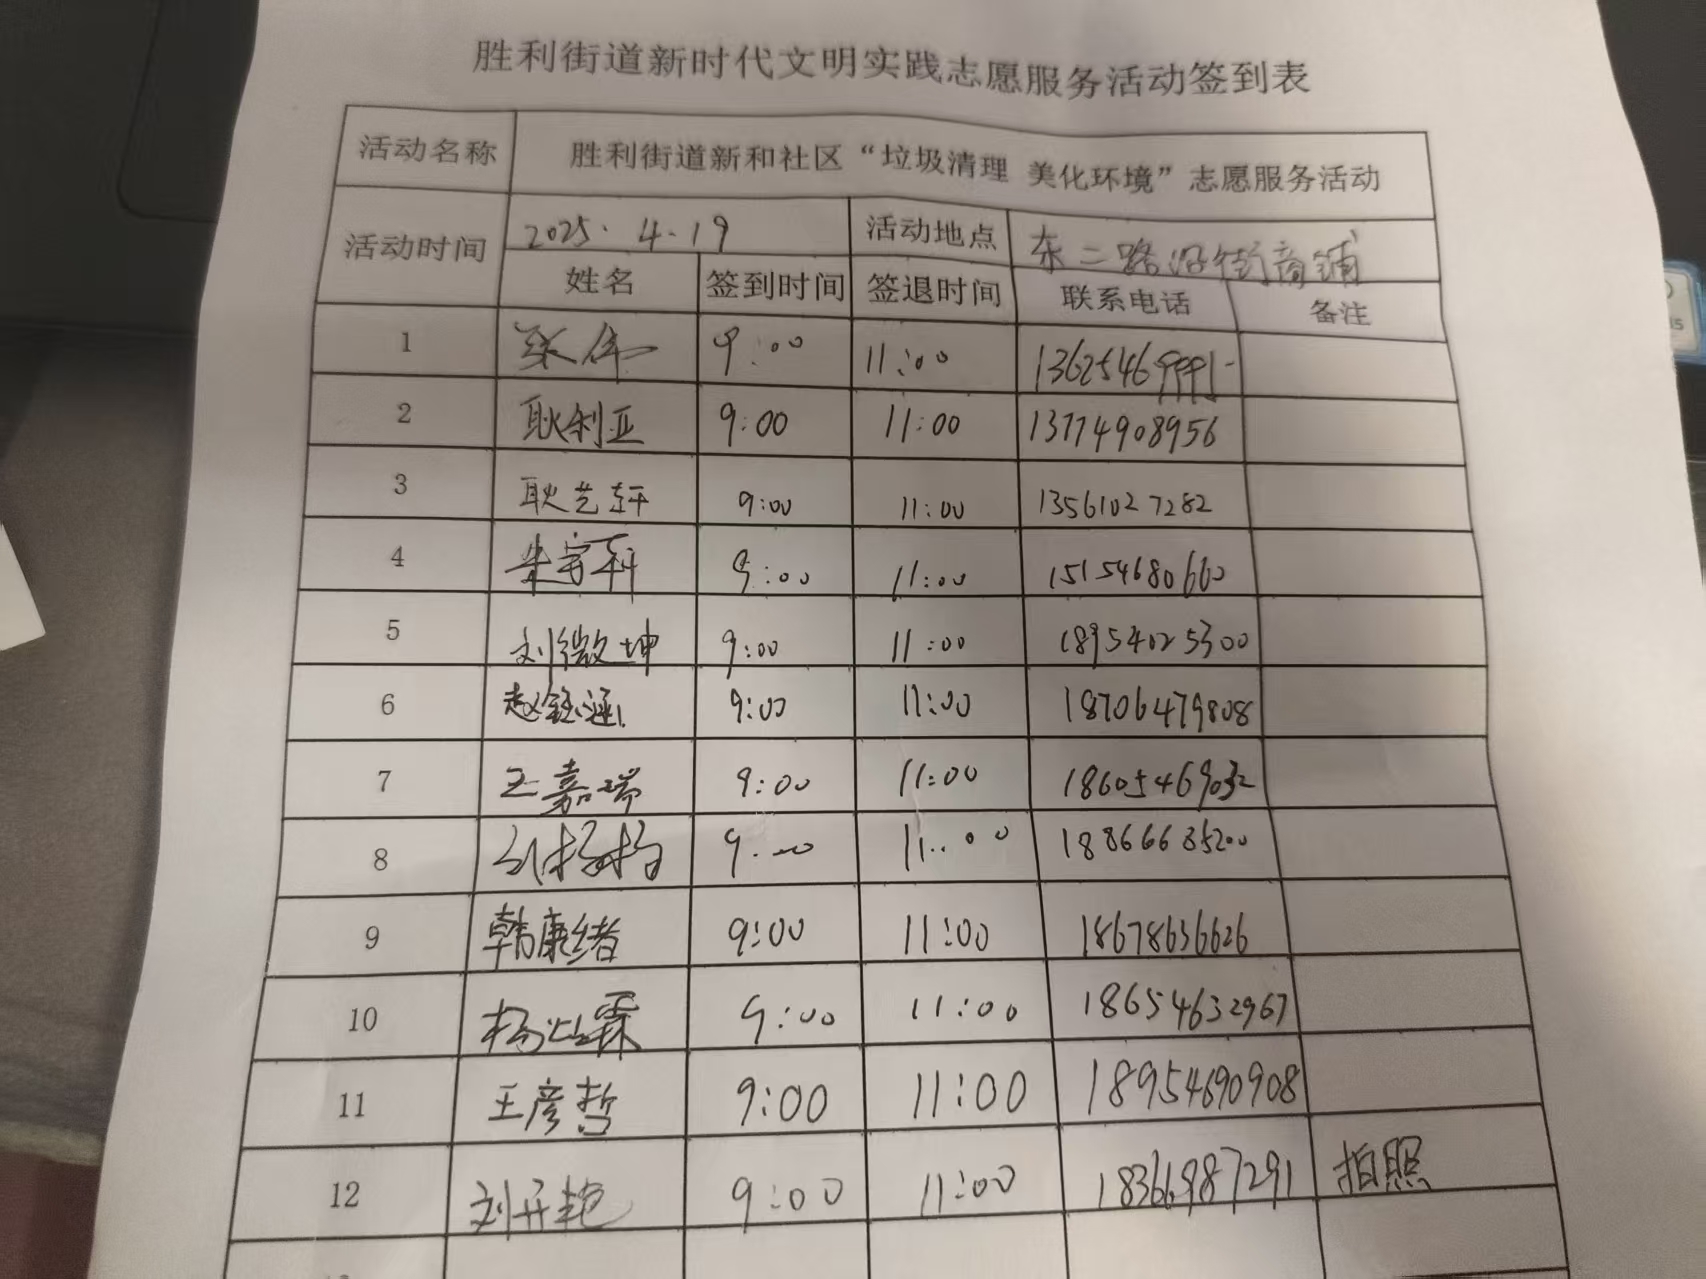 胜利街道新时代文明实践志愿服务活动签到表
活动名称 胜利街道新和社区“垃圾清理 美化环境”志愿服务活动
活动时间 2025.4.19 活动地点 东二路沿街商铺
姓名 签到时间 签退时间 联系电话 备注
1 张伟 9:00 11:00
2 耿利亚 9:00 11:00 13774908956
3 耿艺轩 9:00 11:00 13561027282
4 朱宇轩 9:00 11:00 15154680660
5 刘微坤 9:00 11:00 18954025300
6 赵钰涵 9:00 11:00 18706479808
7 王嘉瑞 9:00 11:00 18605469032
8 9:00 11:00 18866685200
9 韩康绪 9:00 11:00 18678636626
10 9:00 11:00 18654632967
11 王彦哲 9:00 11:00 18954690908
12 刘开艳 9:00 11:00 18366987291 拍照